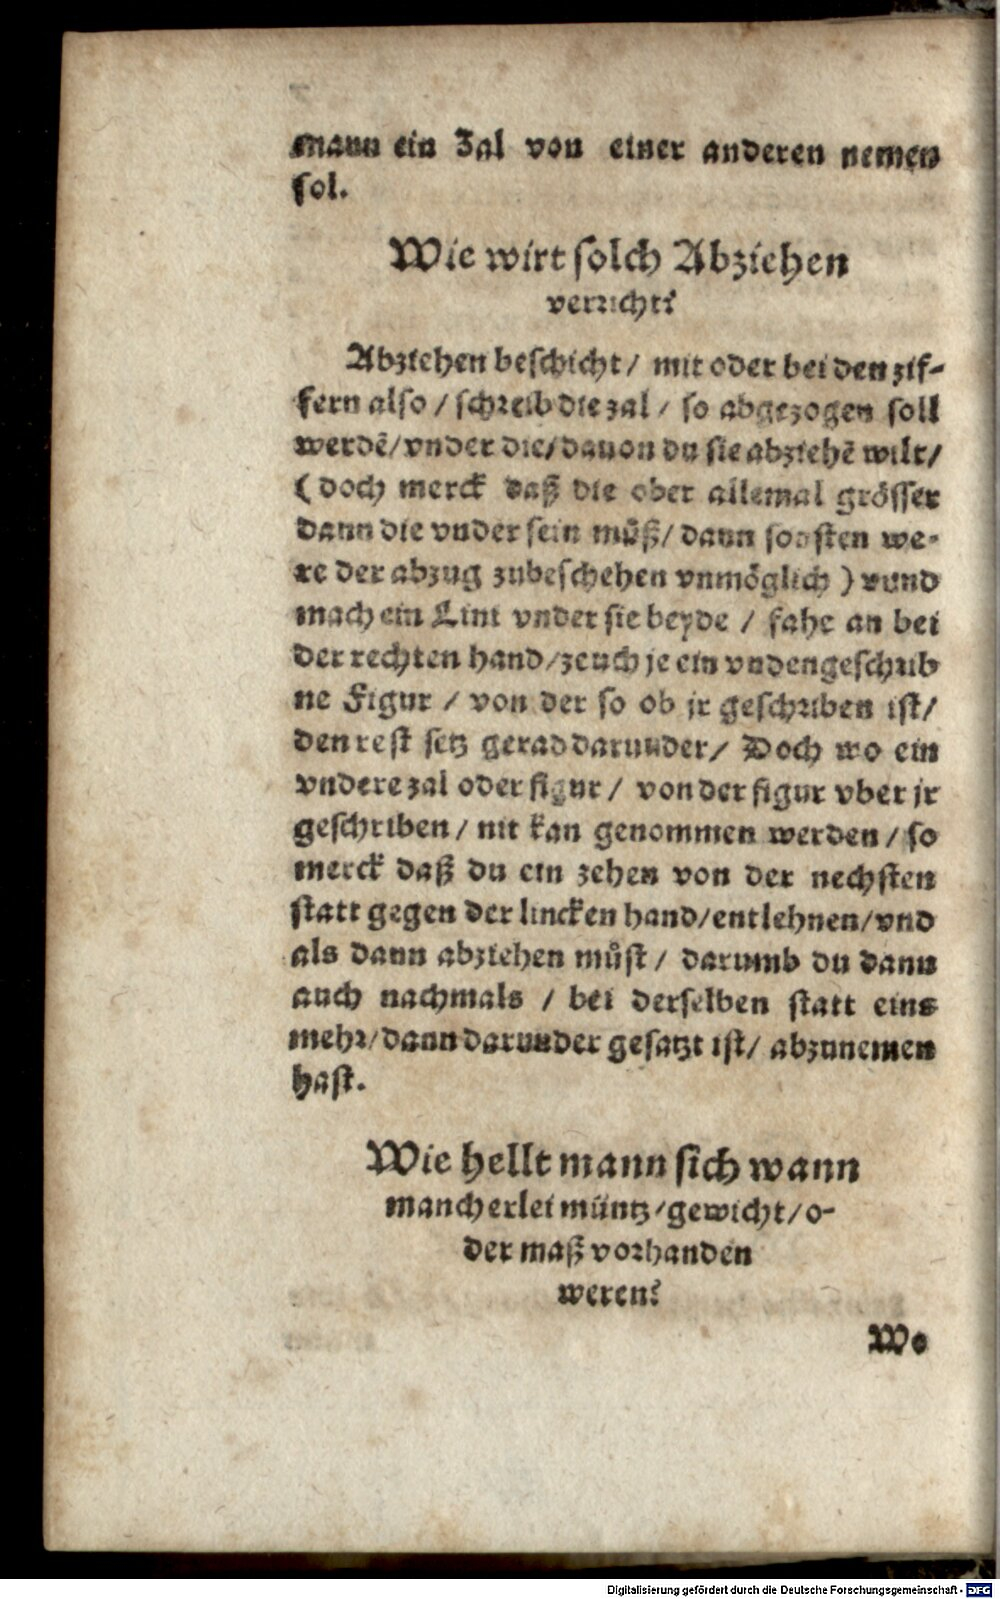 mann ein Zal von einer anderen nemen
sol.
Wie wirt solch Abziehen
verricht?
Abziehen beschicht / mit oder bei den zif-
fern also / schreib die zal / so abgezogen soll
werdẽ / vnder die / dauon du sie abziehẽ wilt /
( doch merck daß die ober allemal grösser
dann die vnder sein můß / dann sonsten we-
re der abzug zubeschehen vnmöglich ) vnnd
mach ein Lini vnder sie beyde / fahe an bei
der rechten hand / zeuch je ein vndengeschrib
ne Figur / von der so ob jr geschriben ist /
den rest setz gerad darunder / Doch wo ein
vndere zal oder figur / von der figur vber jr
geschriben / nit kan genommen werden / so
merck daß du ein zehen von der nechsten
statt gegen der lincken hand / entlehnen / vnd
als dann abziehen můst / darumb du dann
auch nachmals / bei derselben statt eins
mehr / dann darunder gesatzt ist / abzunemen
hast.
Wie hellt mann sich wann
mancherlei müntz / gewicht / o-
der maß vorhanden
weren?
Wo
Digitalisierung gefördert durch die Deutsche Forschungsgemeinschaft - DFG